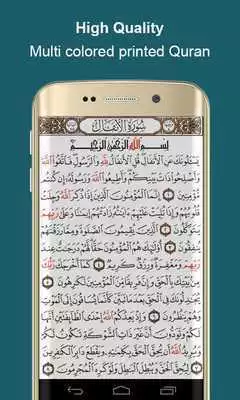 High Quality
Multi colored printed Quran
سُورَةُ الأَنفَالِ
بِسْمِ ٱللَّهِ ٱلرَّحْمَٰنِ ٱلرَّحِيمِ
يَسْـَٔلُونَكَ عَنِ ٱلْأَنفَالِ قُلِ ٱلْأَنفَالُ لِلَّهِ وَٱلرَّسُولِ فَٱتَّقُوا۟ ٱللَّهَ
وَأَصْلِحُوا۟ ذَاتَ بَيْنِكُمْ وَأَطِيعُوا۟ ٱللَّهَ وَرَسُولَهُۥٓ إِن كُنتُم
مُّؤْمِنِينَ ١ إِنَّمَا ٱلْمُؤْمِنُونَ ٱلَّذِينَ إِذَا ذُكِرَ ٱللَّهُ وَجِلَتْ
قُلُوبُهُمْ وَإِذَا تُلِيَتْ عَلَيْهِمْ ءَايَٰتُهُۥ زَادَتْهُمْ إِيمَٰنًا وَعَلَىٰ
رَبِّهِمْ يَتَوَكَّلُونَ ٢ ٱلَّذِينَ يُقِيمُونَ ٱلصَّلَوٰةَ وَمِمَّا رَزَقْنَٰهُمْ
يُنفِقُونَ ٣ أُو۟لَٰٓئِكَ هُمُ ٱلْمُؤْمِنُونَ حَقًّا لَّهُمْ دَرَجَٰتٌ عِندَ
رَبِّهِمْ وَمَغْفِرَةٌ وَرِزْقٌ كَرِيمٌ ٤ كَمَآ أَخْرَجَكَ رَبُّكَ
مِنۢ بَيْتِكَ بِٱلْحَقِّ وَإِنَّ فَرِيقًا مِّنَ ٱلْمُؤْمِنِينَ لَكَٰرِهُونَ ٥
يُجَٰدِلُونَكَ فِى ٱلْحَقِّ بَعْدَ مَا تَبَيَّنَ كَأَنَّمَا يُسَاقُونَ إِلَى ٱلْمَوْتِ
وَهُمْ يَنظُرُونَ ٦ وَإِذْ يَعِدُكُمُ ٱللَّهُ إِحْدَى ٱلطَّآئِفَتَيْنِ أَنَّهَا
لَكُمْ وَتَوَدُّونَ أَنَّ غَيْرَ ذَاتِ ٱلشَّوْكَةِ تَكُونُ لَكُمْ
وَيُرِيدُ ٱللَّهُ أَن يُحِقَّ ٱلْحَقَّ بِكَلِمَٰتِهِۦ وَيَقْطَعَ دَابِرَ ٱلْكَٰفِرِينَ
٧ لِيُحِقَّ ٱلْحَقَّ وَيُبْطِلَ ٱلْبَٰطِلَ وَلَوْ كَرِهَ ٱلْمُجْرِمُونَ